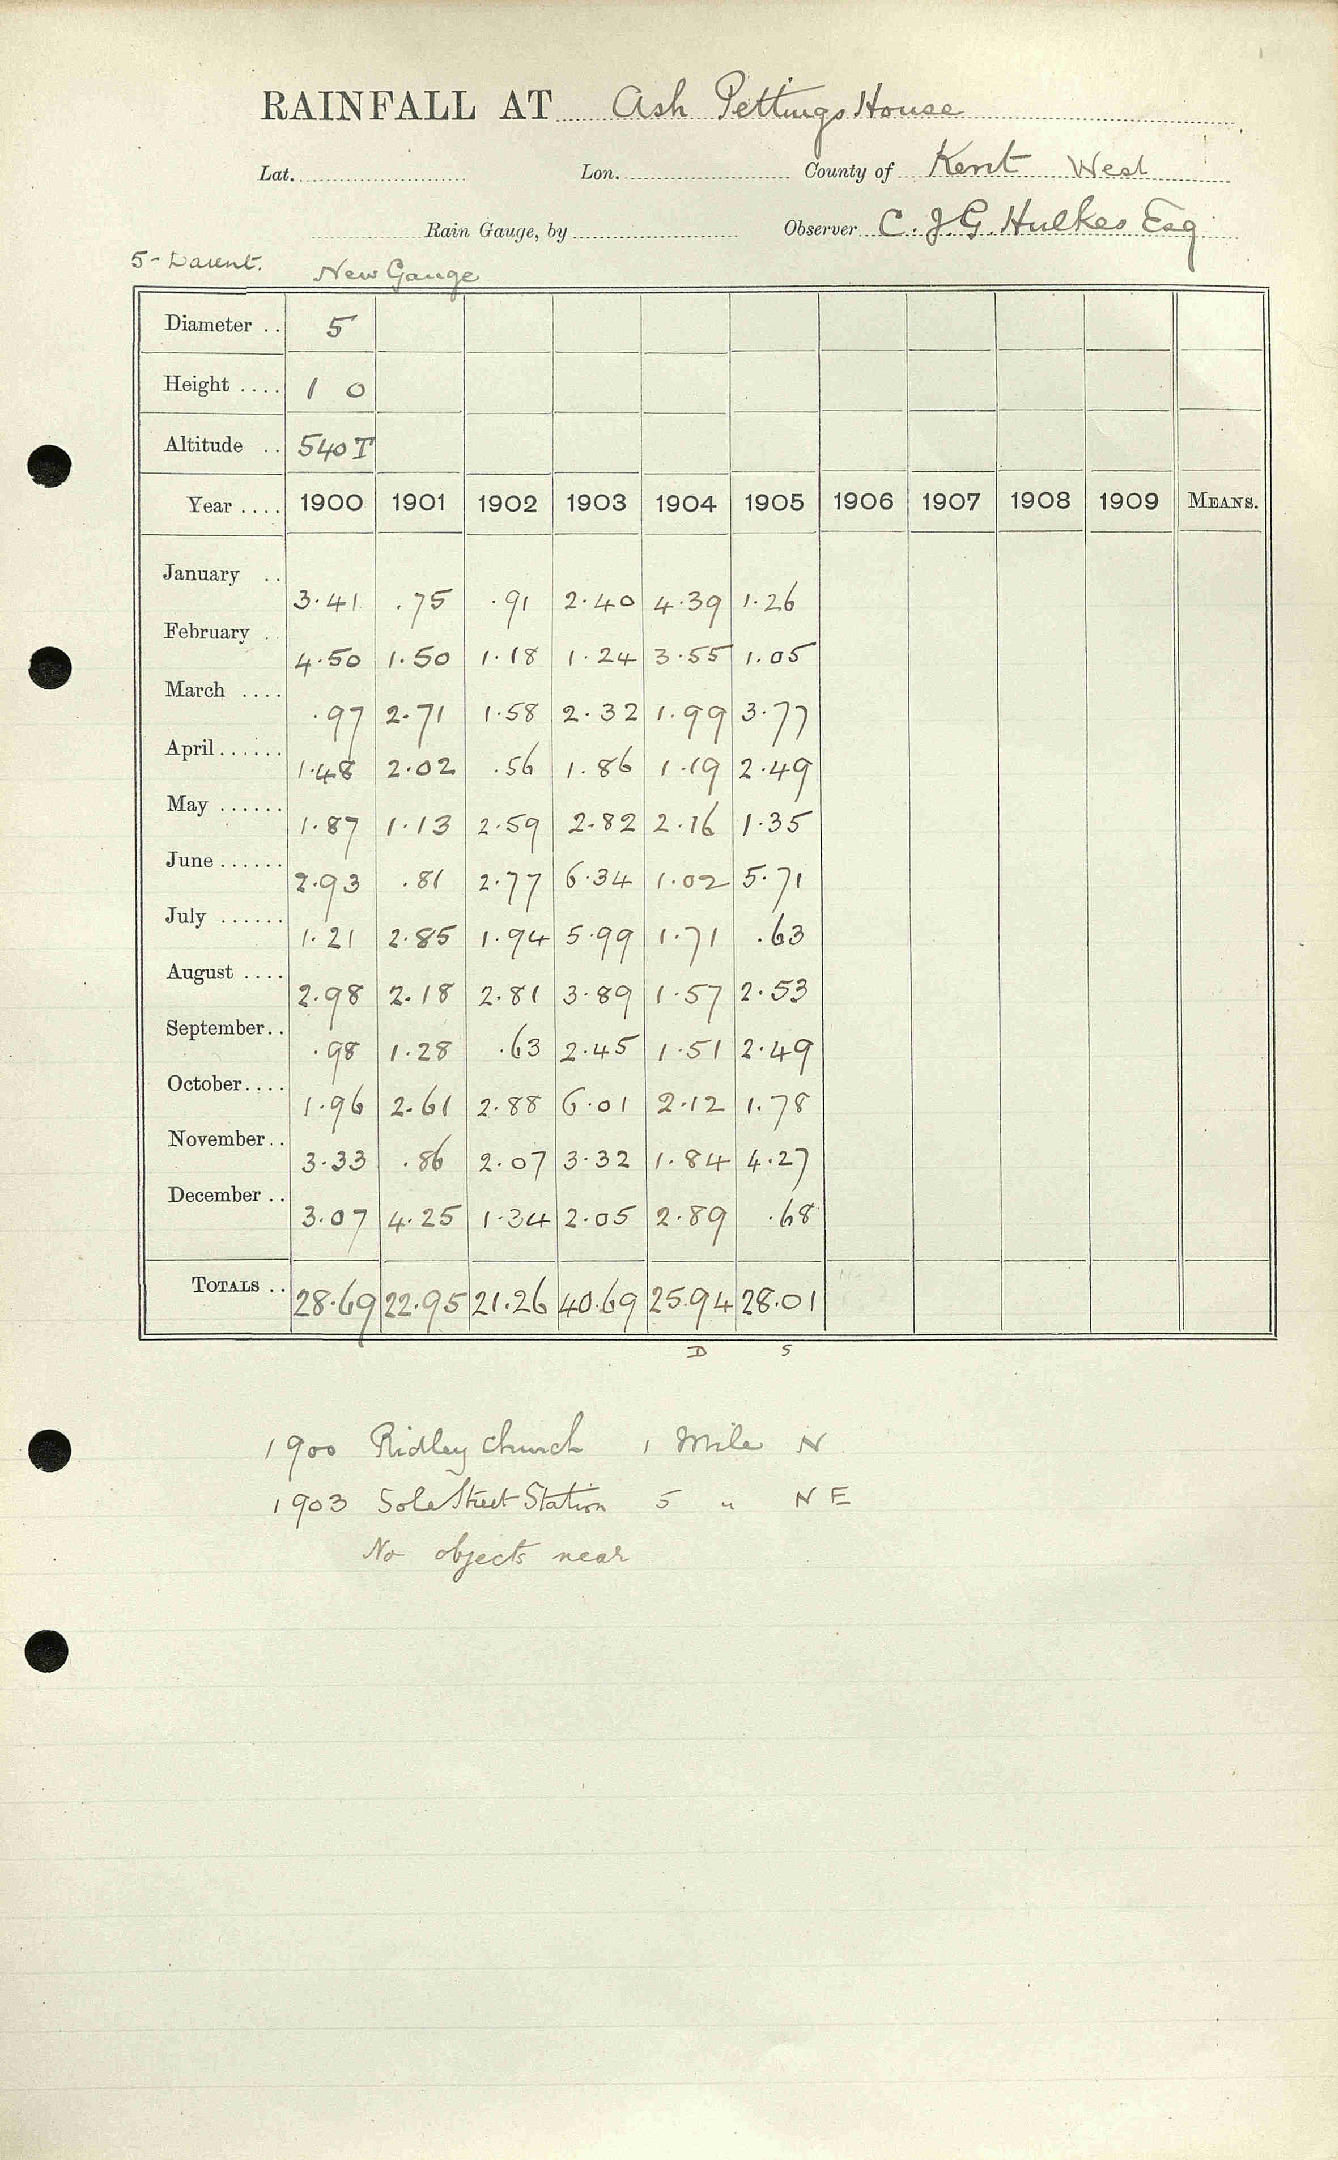 RAINFALL AT Ash Pettings House
Lat. Lon. County of Kent West
Rain Gauge, by Observer C. J. G. Hulkes Esq
5 - Darent. New Gauge
Diameter .. 5
Height .... 1 0
Altitude .. 540 T
Year .... 1900 1901 1902 1903 1904 1905 1906 1907 1908 1909 MEANS.
January .. 3.41 .75 .91 2.40 4.39 1.26
February . 4.50 1.50 1.18 1.24 3.55 1.05
March .... .97 2.71 1.58 2.32 1.99 3.77
April...... 1.48 2.02 .56 1.86 1.19 2.49
May ...... 1.87 1.13 2.59 2.82 2.16 1.35
June ...... 2.93 .81 2.77 6.34 1.02 5.71
July ...... 1.21 2.85 1.94 5.99 1.71 .63
August .... 2.98 2.18 2.81 3.89 1.57 2.53
September.. .98 1.28 .63 2.45 1.51 2.49
October.... 1.96 2.61 2.88 6.01 2.12 1.78
November.. 3.33 .86 2.07 3.32 1.84 4.27
December .. 3.07 4.25 1.34 2.05 2.89 .68
TOTALS .. 28.69 22.95 21.26 40.69 25.94 28.01
D S
1900 Ridley Church 1 Mile N
1903 Sole Street Station 5 " NE
No objects near